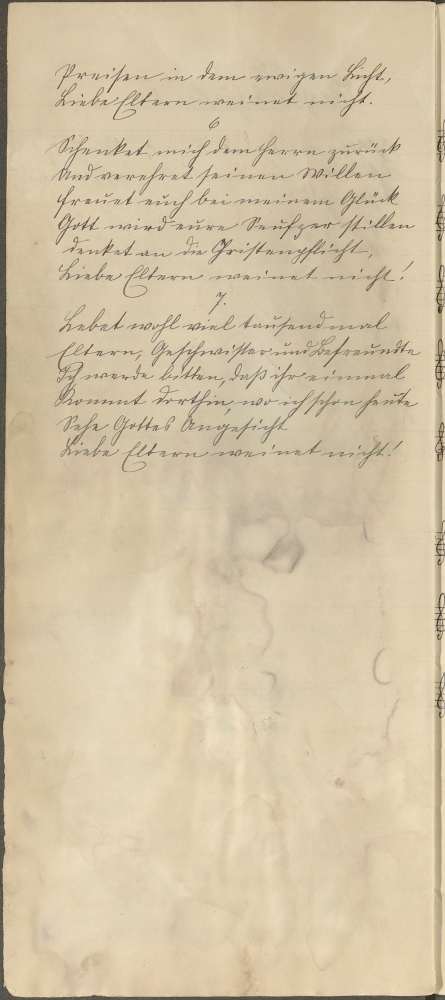 Preisen in dem ewigen Licht,
Liebe Eltern weinet nicht.
6
Schenket mich dem Herrn zurück
Und verehret seinen Willen
freuet euch bei meinem Glück
Gott wird eure Seufzer stillen
denket an die Christenpflicht,
Liebe Eltern weinet nicht!
7.
Lebet wohl viel tausendmal
Eltern, Geschwister und Befreundte
Ich werde bitten, daß ihr einmal
Kommt dorthin, wo ich schon heute
Sehe Gottes Angesicht
Liebe Eltern weinet nicht!